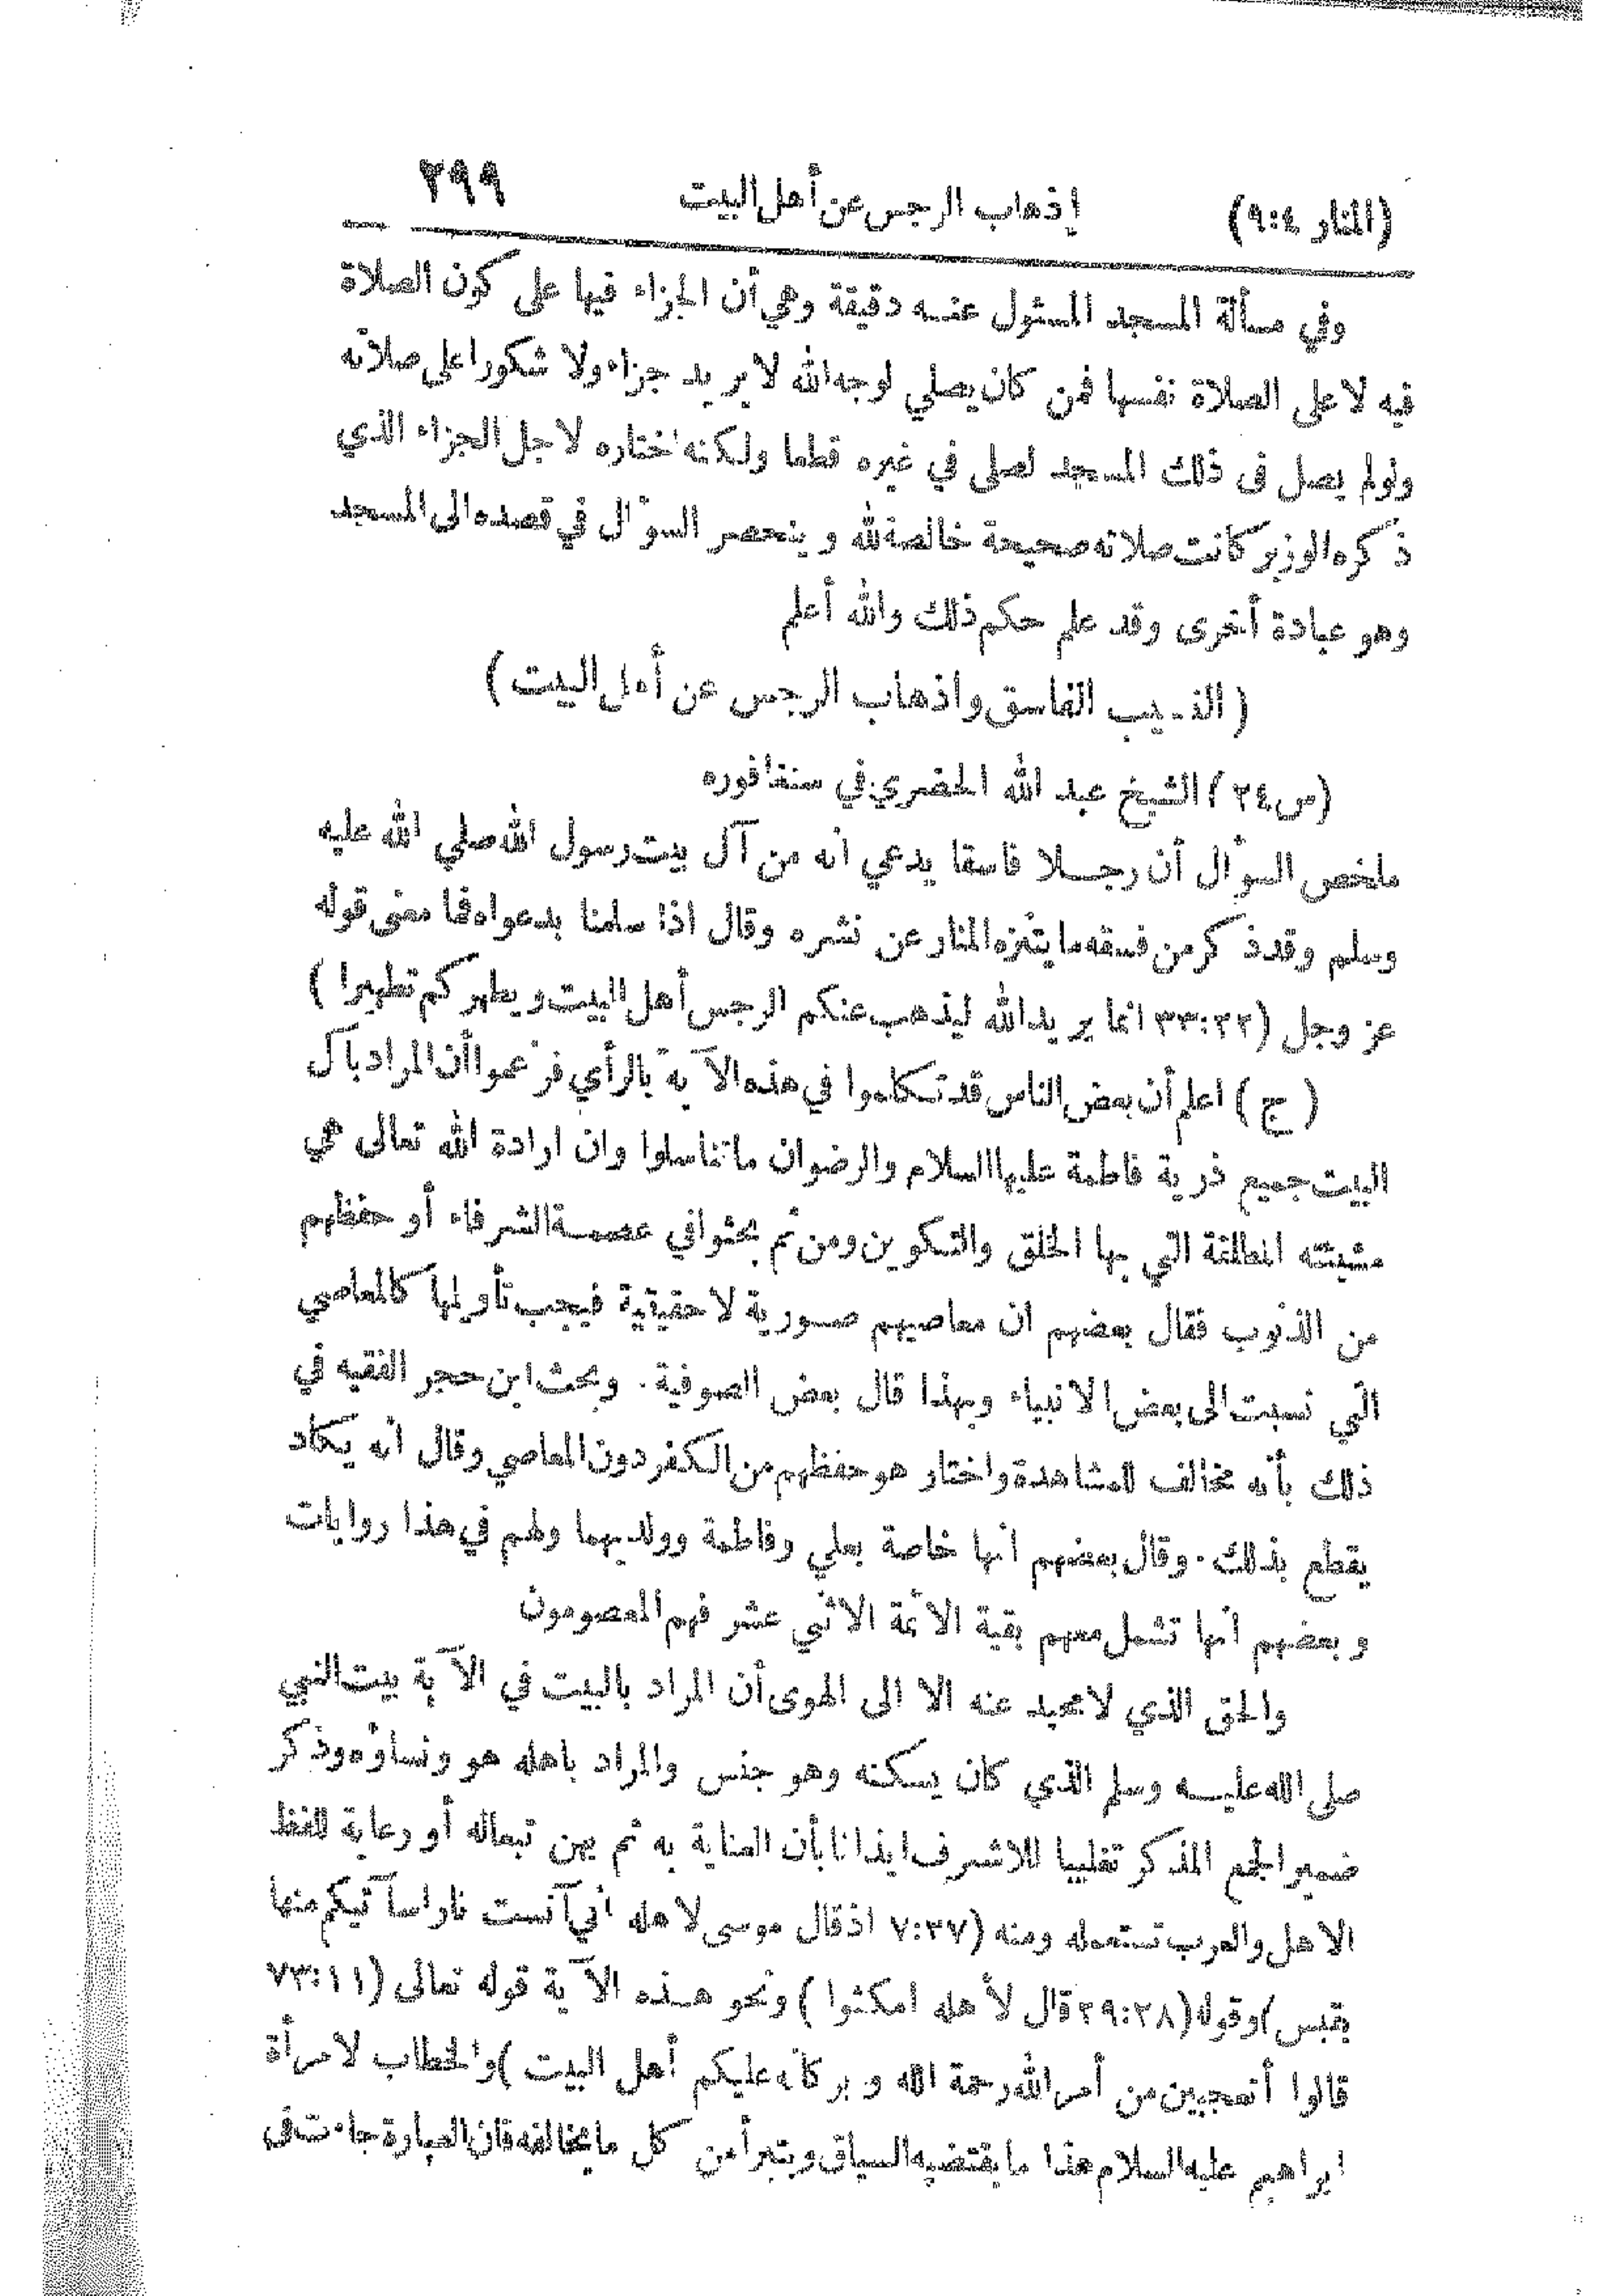 (المنار ٩:٤) إذهاب الرجس عن أهل البيت ٢٩٩
وفي مسألة المسجد المسئول عنه دقيقة وهي أن الجزاء فيها على كون الصلاة
فيه لا على الصلاة نفسها فمن كان يصلي لوجه الله لا يريد جزاء ولا شكورا على صلاته
ولولم يصل فى ذلك المسجد لصلى في غيره قطعا ولكنه اختاره لاجل الجزاء الذي
ذكره الوزير كانت صلاته صحيحة خالصة لله وينحصر السؤال في قصده الى المسجد
وهو عبادة أخرى وقد علم حكم ذلك والله أعلم
(النسيب الفاسق واذهاب الرجس عن أهل البيت)
(س٢٤) الشيخ عبد الله الحضري في سنغافوره
ملخص السؤال أن رجلا فاسقا يدعي أنه من آل بيت رسول الله صلي الله عليه
وسلم وقد ذكر من فسقه ما يتنزه المنار عن نشره وقال اذا سلمنا بدعواه فما معنى قوله
عز وجل (٣٣:٢٢ انما يريد الله ليذهب عنكم الرجس أهل البيت ويطهركم تطهيرا)
(ج) اعلم أن بعض الناس قد تكلموا في هذه الآية بالرأي فزعموا أن المراد بآل
البيت جميع ذرية فاطمة عليها السلام والرضوان ما تناسلوا وان ارادة الله تعالى هي
مشيئته المطلقة التي بها الخلق والتكوين ومن ثم بحثوا في عصمة الشرفاء أو حفظهم
من الذنوب فقال بعضهم ان معاصيهم صورية لا حقيقية فيجب تأولها كالمعاصي
التي نسبت الى بعض الانبياء وبهذا قال بعض الصوفية. وبحث ابن حجر الفقيه في
ذلك بأنه مخالف للمشاهدة واختار هو حفظهم من الكفر دون المعاصي وقال انه يكاد
يقطع بذلك. وقال بعضهم انها خاصة بعلي وفاطمة وولديهما ولهم في هذا روايات
وبعضهم انها تشمل معهم بقية الائمة الاثني عشر فهم المعصومون
والحق الذي لا محيد عنه الا الى الهوى أن المراد بالبيت في الآية بيت النبي
صلى الله عليه وسلم الذي كان يسكنه وهو جنس والمراد باهله هو ونساؤه وذكر
ضمير الجمع المذكر تغليبا للاشرف ايذانا بأن العناية به ثم بهن تبعا له أو رعاية للفظ
الاهل والعرب تستعمله ومنه (٧:٢٧ اذ قال موسى لاهله اني آنست نارا سآتيكم منها
بقبس) وقوله (٢٩:٢٨ قال لأهله امكثوا) ونحو هذه الآية قوله تعالى (٧٣:١١
قالوا أتعجبين من أمر الله رحمة الله وبركاته عليكم أهل البيت) والخطاب لامرأة
ابراهيم عليه السلام هذا ما يقتضيه السياق ويتبرأ من كل ما يخالفه فان العبارة جاءت فى